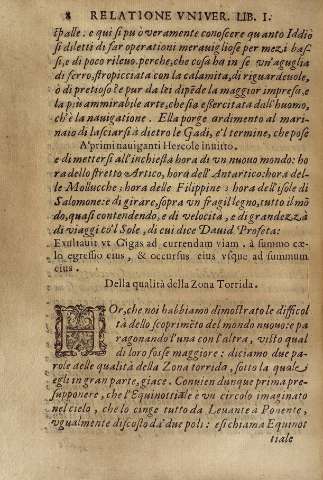 8 RELATIONE VNIVER. LIB. I.
spalle: e qui si puo veramente conoscere quanto Iddio
si diletti di far operationi merauigliose per mezi bas
si, e di poco rileuo. perche, che cosa ha in se vn'aguglia
di ferro, stropicciata con la calamita, di riguardeuole,
ò di pretioso? e pur da lei dipẽde la maggior impresa, e
la piu ammirabile arte, che sia esercitata dall'huomo,
ch'è la nauigatione. Ella porge ardimento al mari-
naio di lasciarsi à dietro le Gadi, e'l termine, che pose
A' primi nauiganti Hercole inuitto.
e di mettersi all'inchiesta hora di vn nuouo mondo: ho
ra dello stretto Artico, hora dell'Antartico: hora del-
le Molucche; hora delle Filippine; hora dell'isole di
Salomone: e di girare, sopra vn fragil legno, tutto il mõ
do, quasi contendendo, e di velocità, e di grandezza
di viaggi co'l Sole, di cui dice Dauid Profeta:
Exultauit vt Gigas ad currendam viam. à summo cæ-
lo egressio eius, & occursus eius vsque ad summum
eius.
Della qualità della Zona Torrida.
HOr, che noi habbiamo dimostrato le difficol
tà dello scoprimẽto del mondo nuouo: e pa
ragonando l'una con l'altra, visto qual
di loro fosse maggiore: diciamo due pa-
role delle qualità della Zona torrida, sotto la quale
egli in gran parte, giace. Conuien dunque prima pre-
supponere, che l'Equinottiale è vn circolo imaginato
nel cielo, che lo cinge tutto da Leuante à Ponente,
vgualmente discosto da' due poli: e si chiama Equinot
tiale